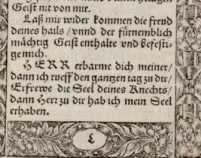 Geist nit von mir.
Laß mir wider kommen die freud
deines hails / vnnd der fürnemblich
mächtig Geist enthalte vnd befesti-
ge mich.
HERR erbarme dich meiner /
dann ich rueff den gantzen tag zu dir /
Erfrewe die Seel deines Knechts /
dann Herr zu dir hab ich mein Seel
erhaben.